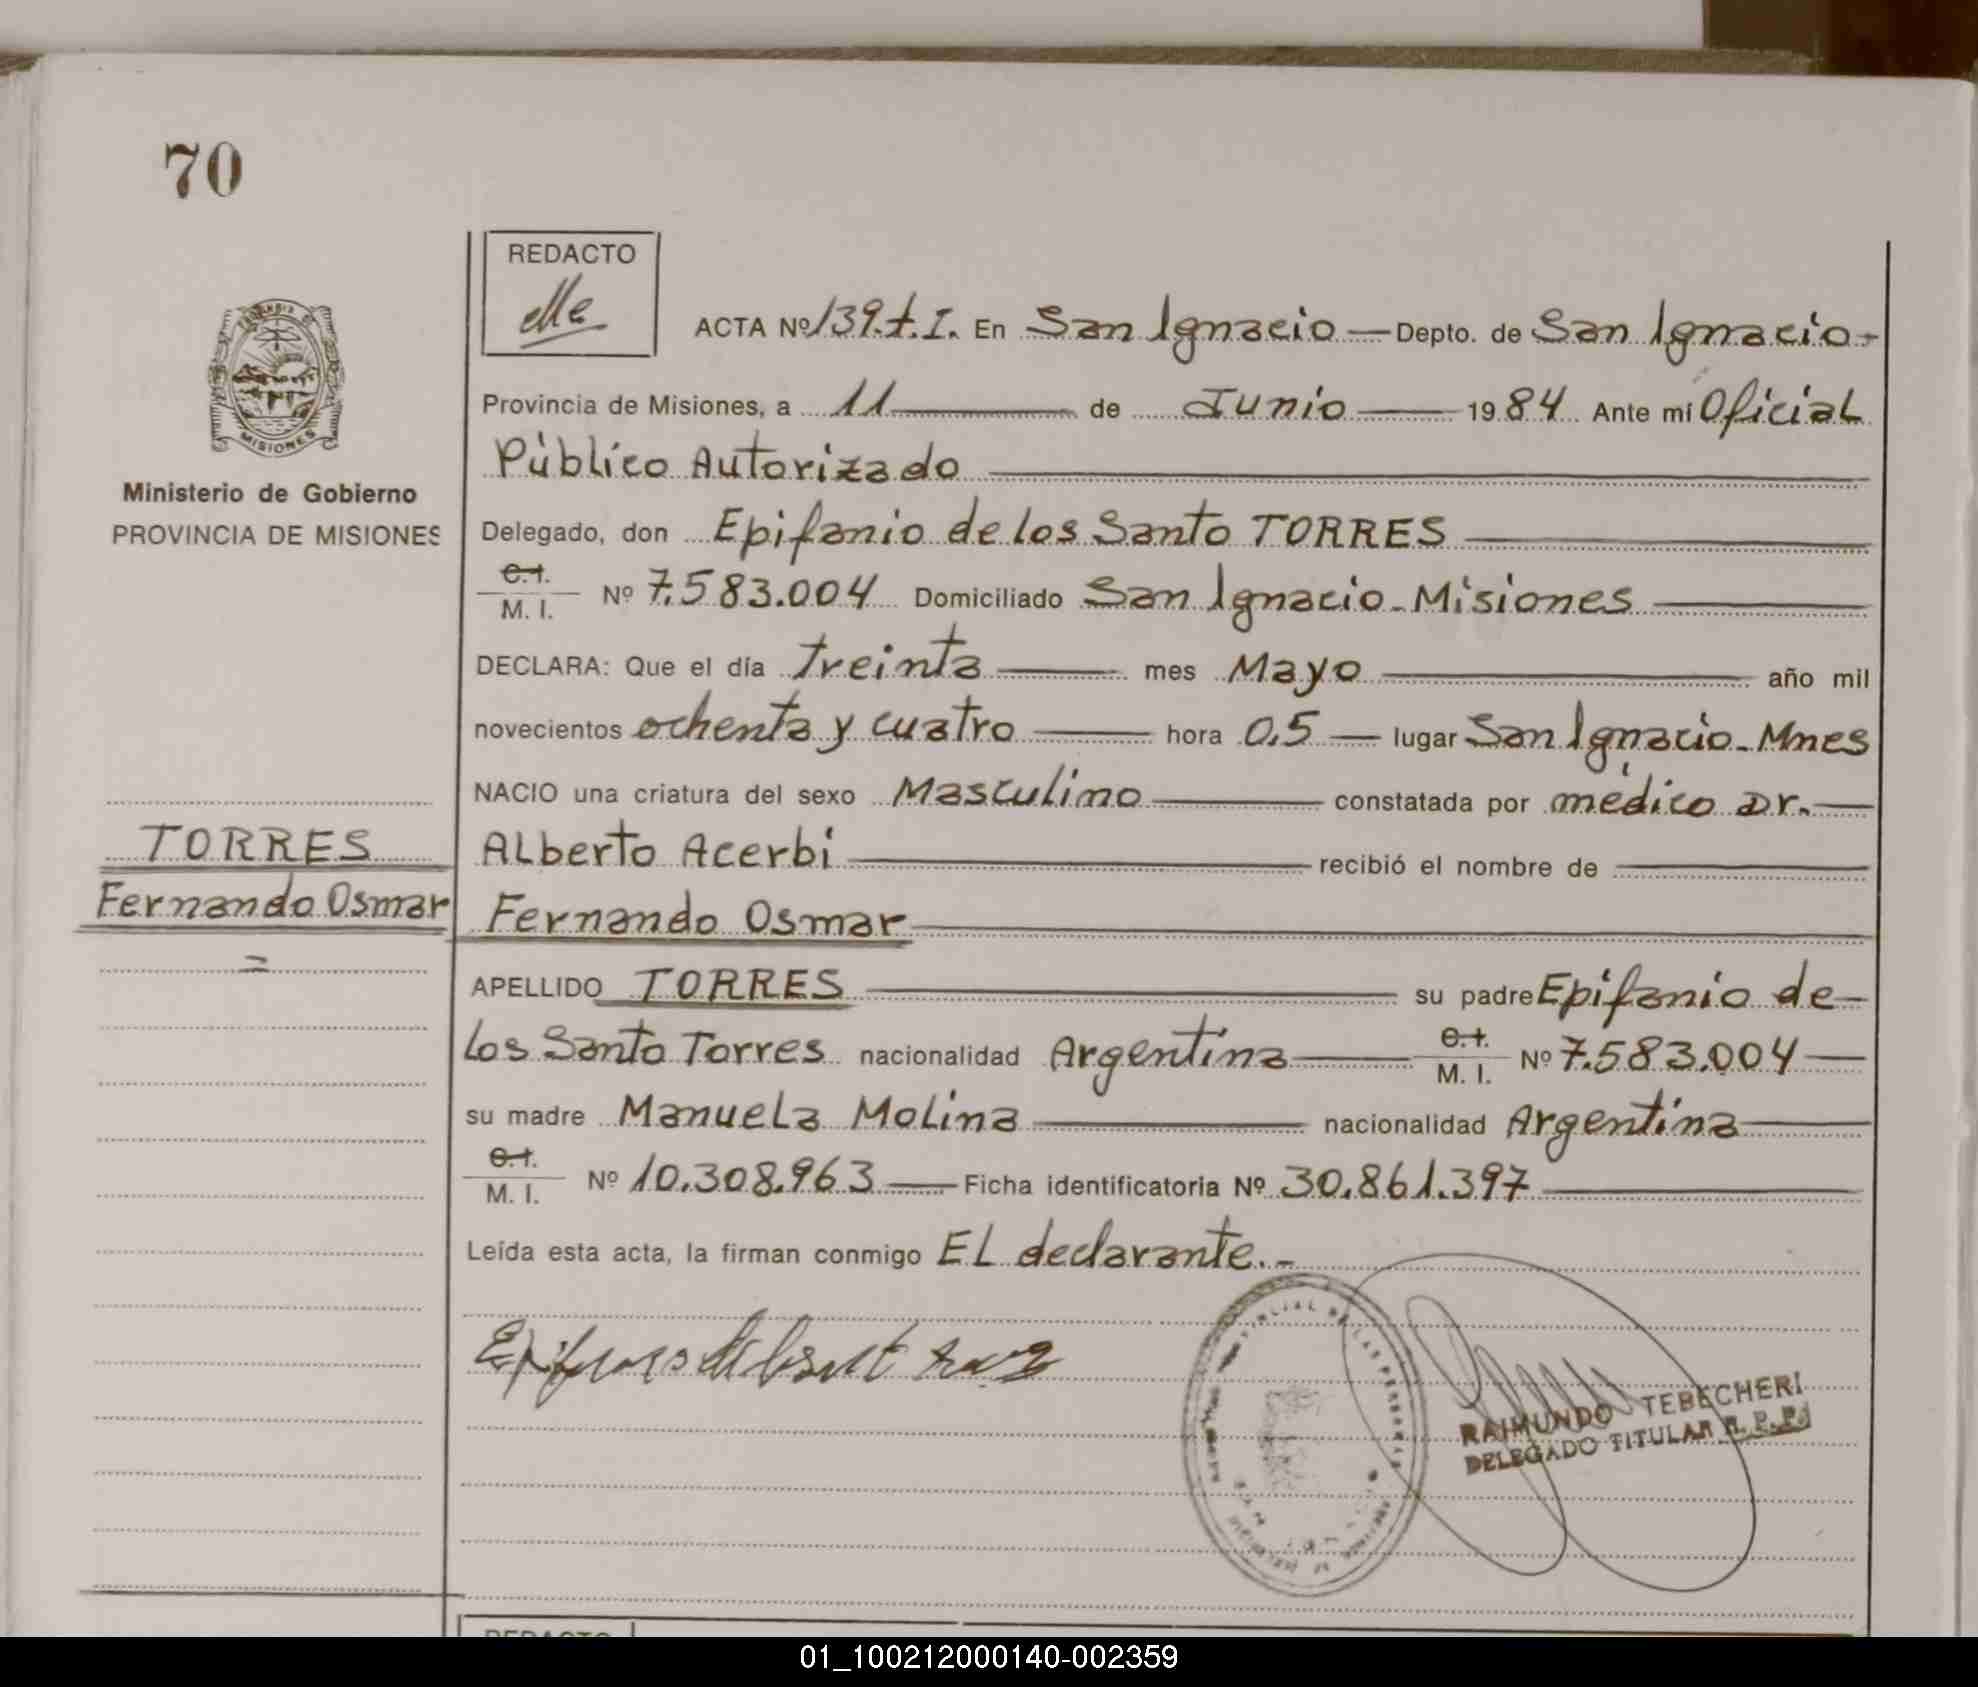 70
REDACTO
ACTA Nº 139.t.I. En San Ignacio — Depto. de San Ignacio -
Provincia de Misiones, a 11 — de Junio — 1984 Ante mí Oficial
Público Autorizado
Ministerio de Gobierno
PROVINCIA DE MISIONES
MISIONES
Delegado, don Epifanio de los Santo TORRES
C.I.
M. I. Nº 7.583.004 Domiciliado San Ignacio - Misiones
DECLARA: Que el día treinta — mes Mayo — año mil
novecientos ochenta y cuatro — hora 0,5 — lugar San Ignacio - Mnes
NACIO una criatura del sexo Masculino — constatada por médico Dr. —
Alberto Acerbi — recibió el nombre de —
Fernando Osmar
TORRES
Fernando Osmar
=
APELLIDO TORRES — su padre Epifanio de —
los Santo Torres nacionalidad Argentina — C.I.
M. I. Nº 7.583.004 —
su madre Manuela Molina — nacionalidad Argentina —
C.I.
M. I. Nº 10.308.963 — Ficha identificatoria Nº 30.861.397 —
Leída esta acta, la firman conmigo EL declarante. -
RAIMUNDO TEBECHERI
DELEGADO TITULAR R. P. P.
REDACTO
01_100212000140-002359